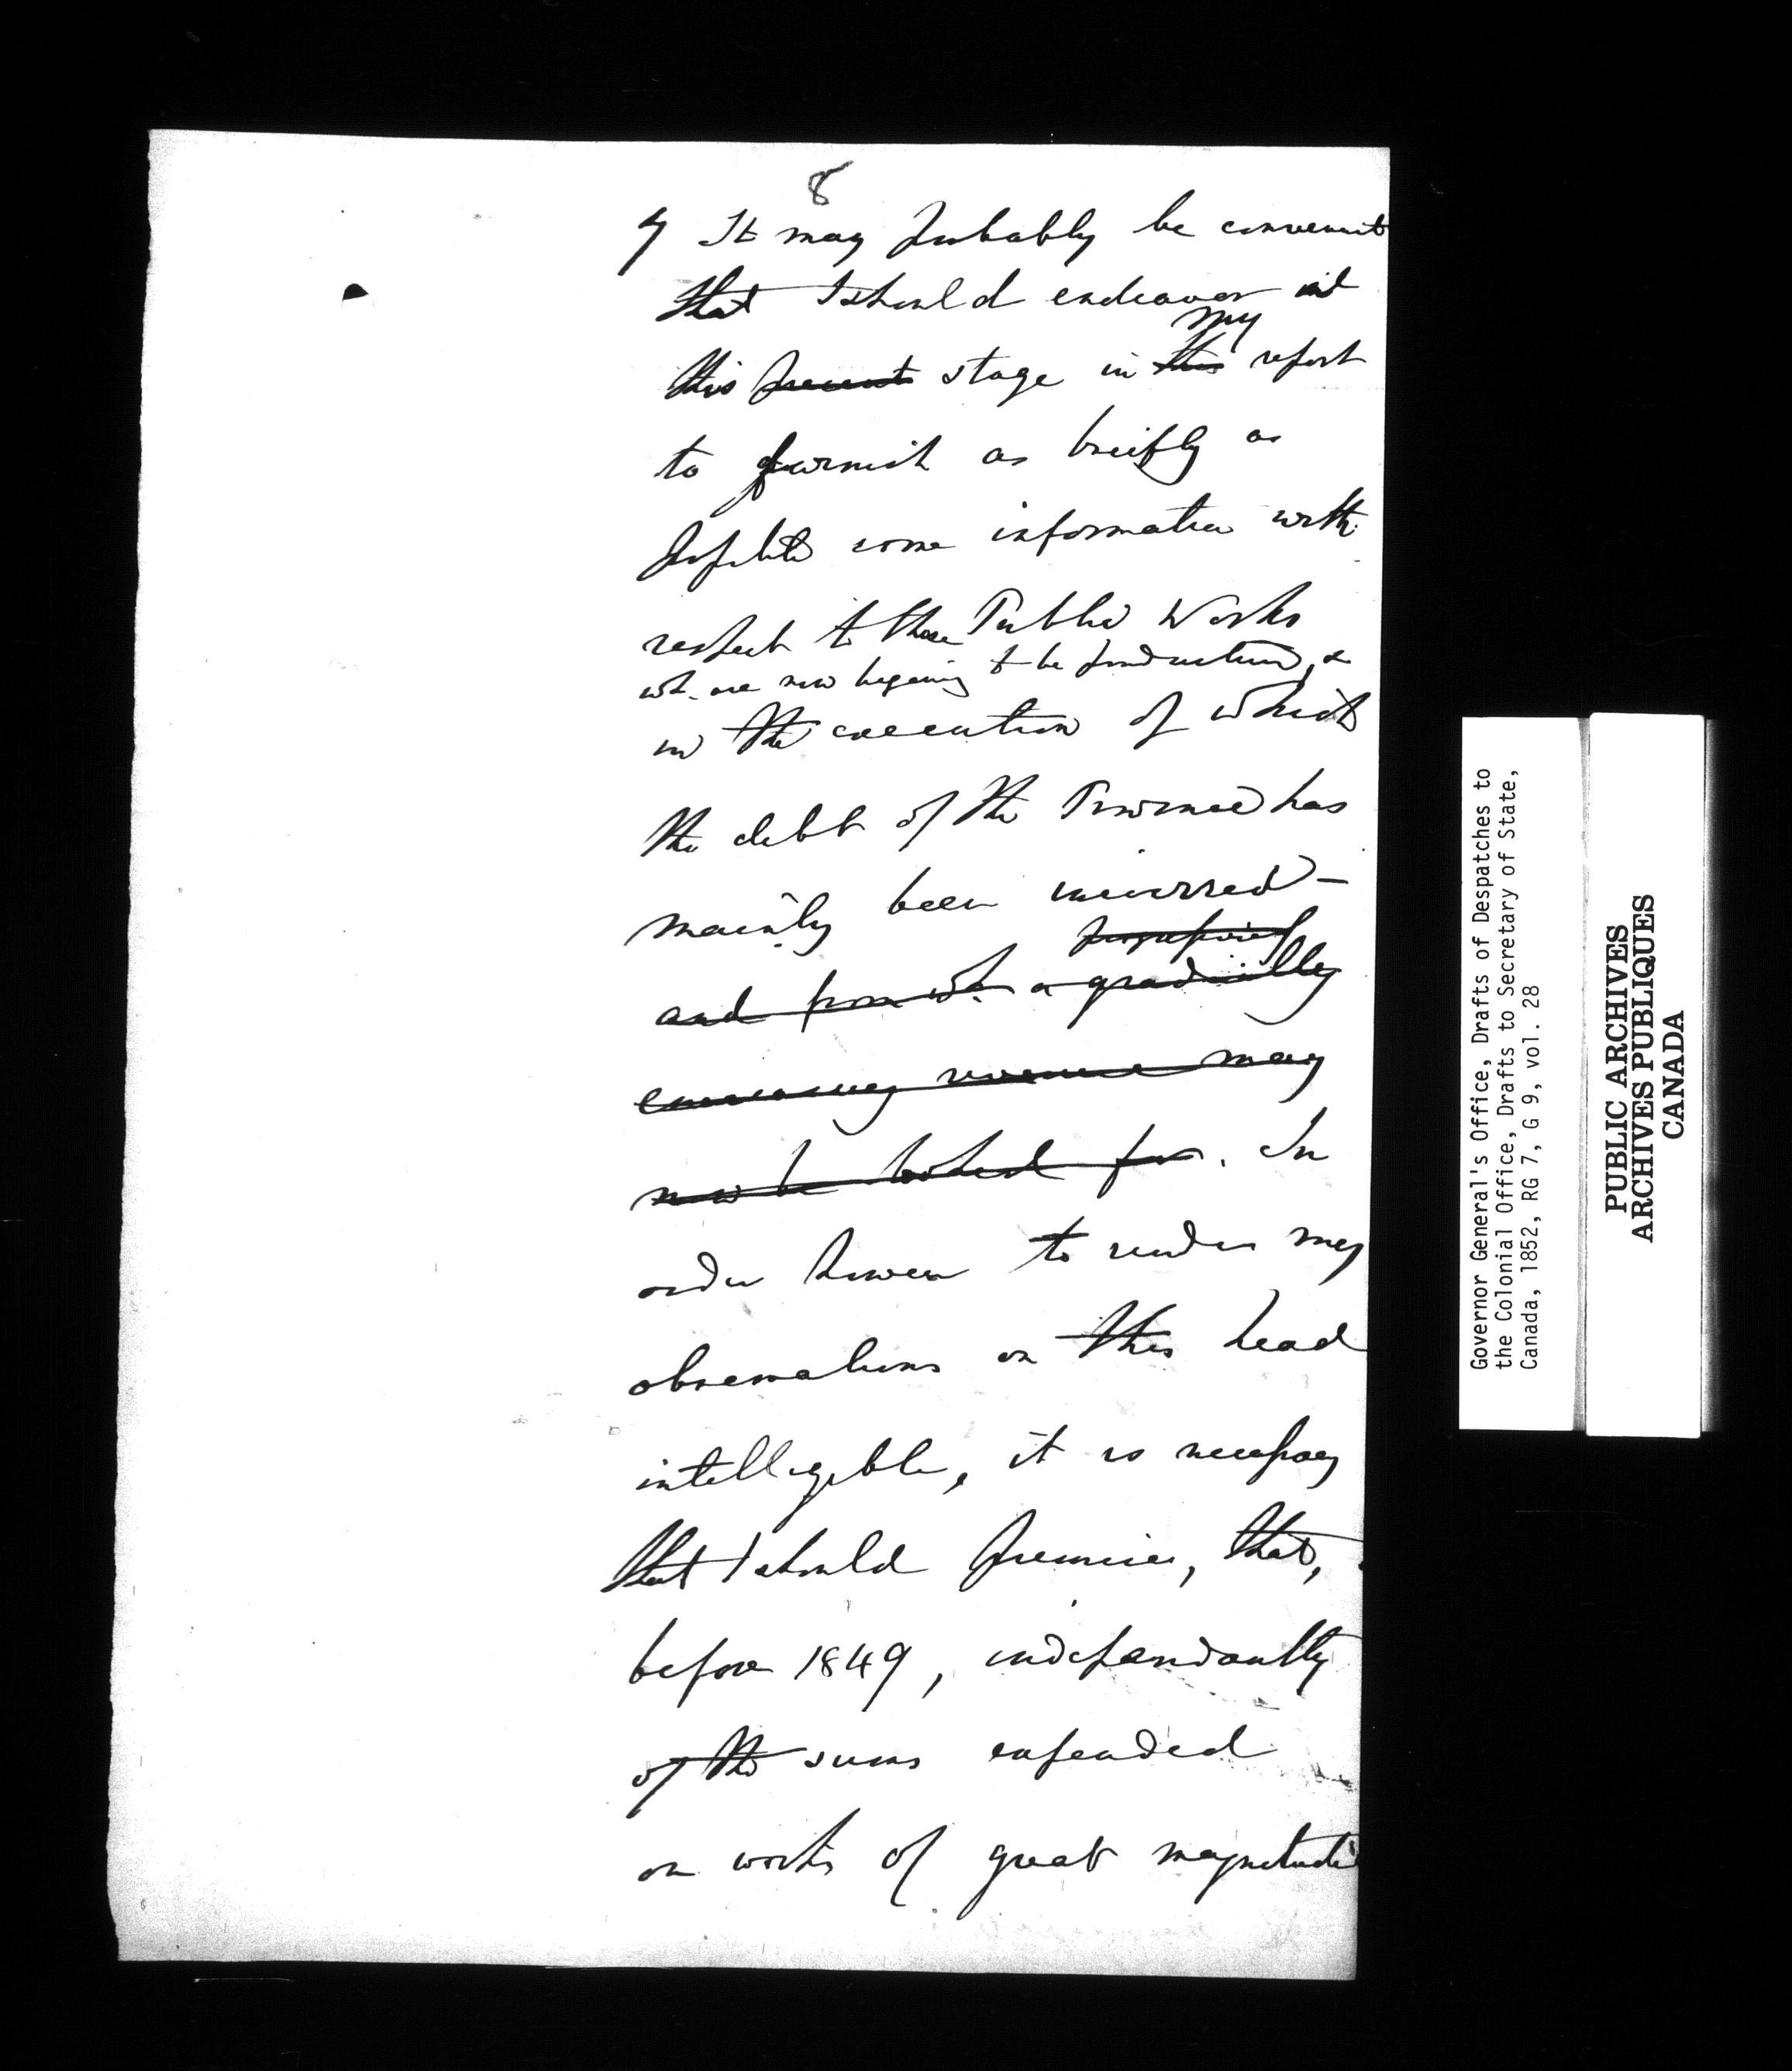 8
7 It may probably be convenient
that I should endeavor at
my
this present stage in this report
to furnish as briefly as
possible some information with
respect to those Public Works
wh. are now begining to be productive, &
in the execution of which
the debt of the Province has
mainly been incurred –
and from wh. a gradually
increasing revenue may
now be looked for. In
order however to render my
observations on this head
intelligible, it is necessary
that I should premise, that,
before 1849, independantly
of the sums expended
on works of great magnitude
Governor General's Office, Drafts of Despatches to
the Colonial Office, Drafts to Secretary of State,
Canada, 1852, RG 7, G 9, vol. 28
PUBLIC ARCHIVES
ARCHIVES PUBLIQUES
CANADA